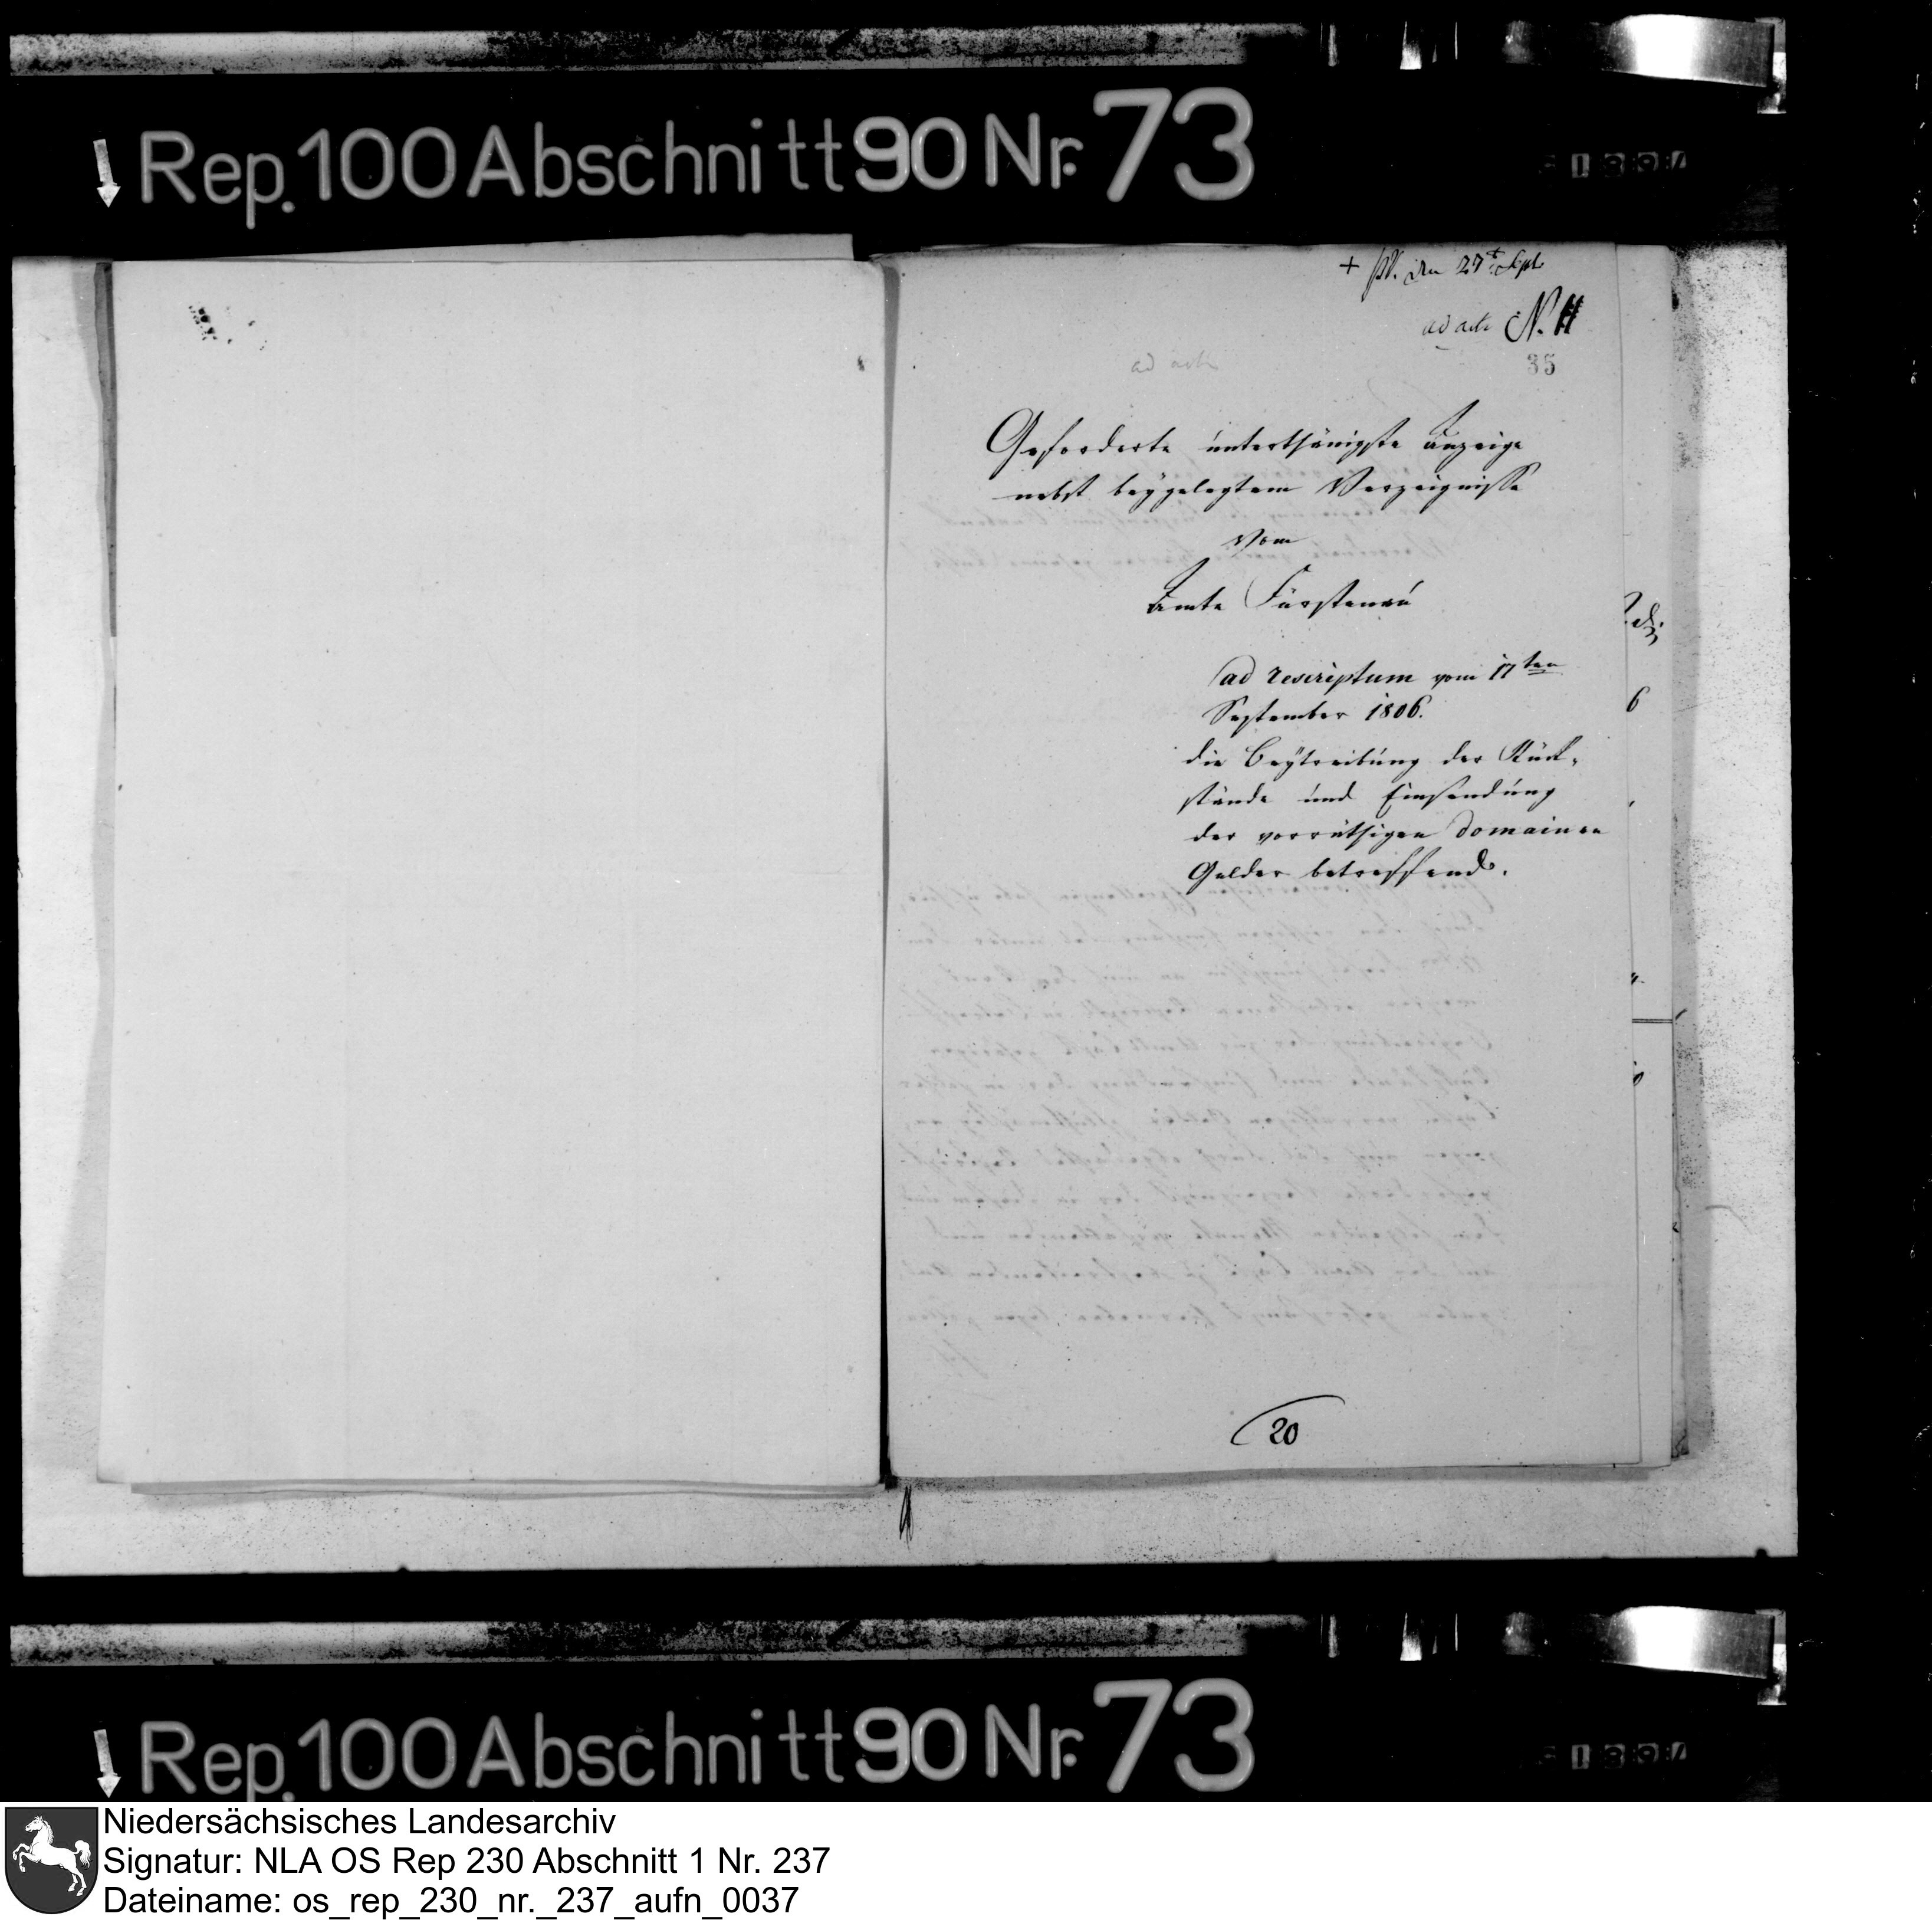 Rep. 100 Abschnitt 90 Nr. 73
den 27t Sept
ad acta N. 11
ad acta
35
Geforderte unterthänigste Anzeige
nebst beygelegtem Verzeignisse
vom
Amte Fürstenau
ad rescriptum vom 17ten
September 1806.
die Beÿtreibung der Rück-
stände und Einsendung
der vorräthigen Domainen
Gelder betreffend.
20
Rep. 100 Abschnitt 90 Nr. 73
Niedersächsisches Landesarchiv
Signatur: NLA OS Rep 230 Abschnitt 1 Nr. 237
Dateiname: os_rep_230_nr._237_aufn_0037